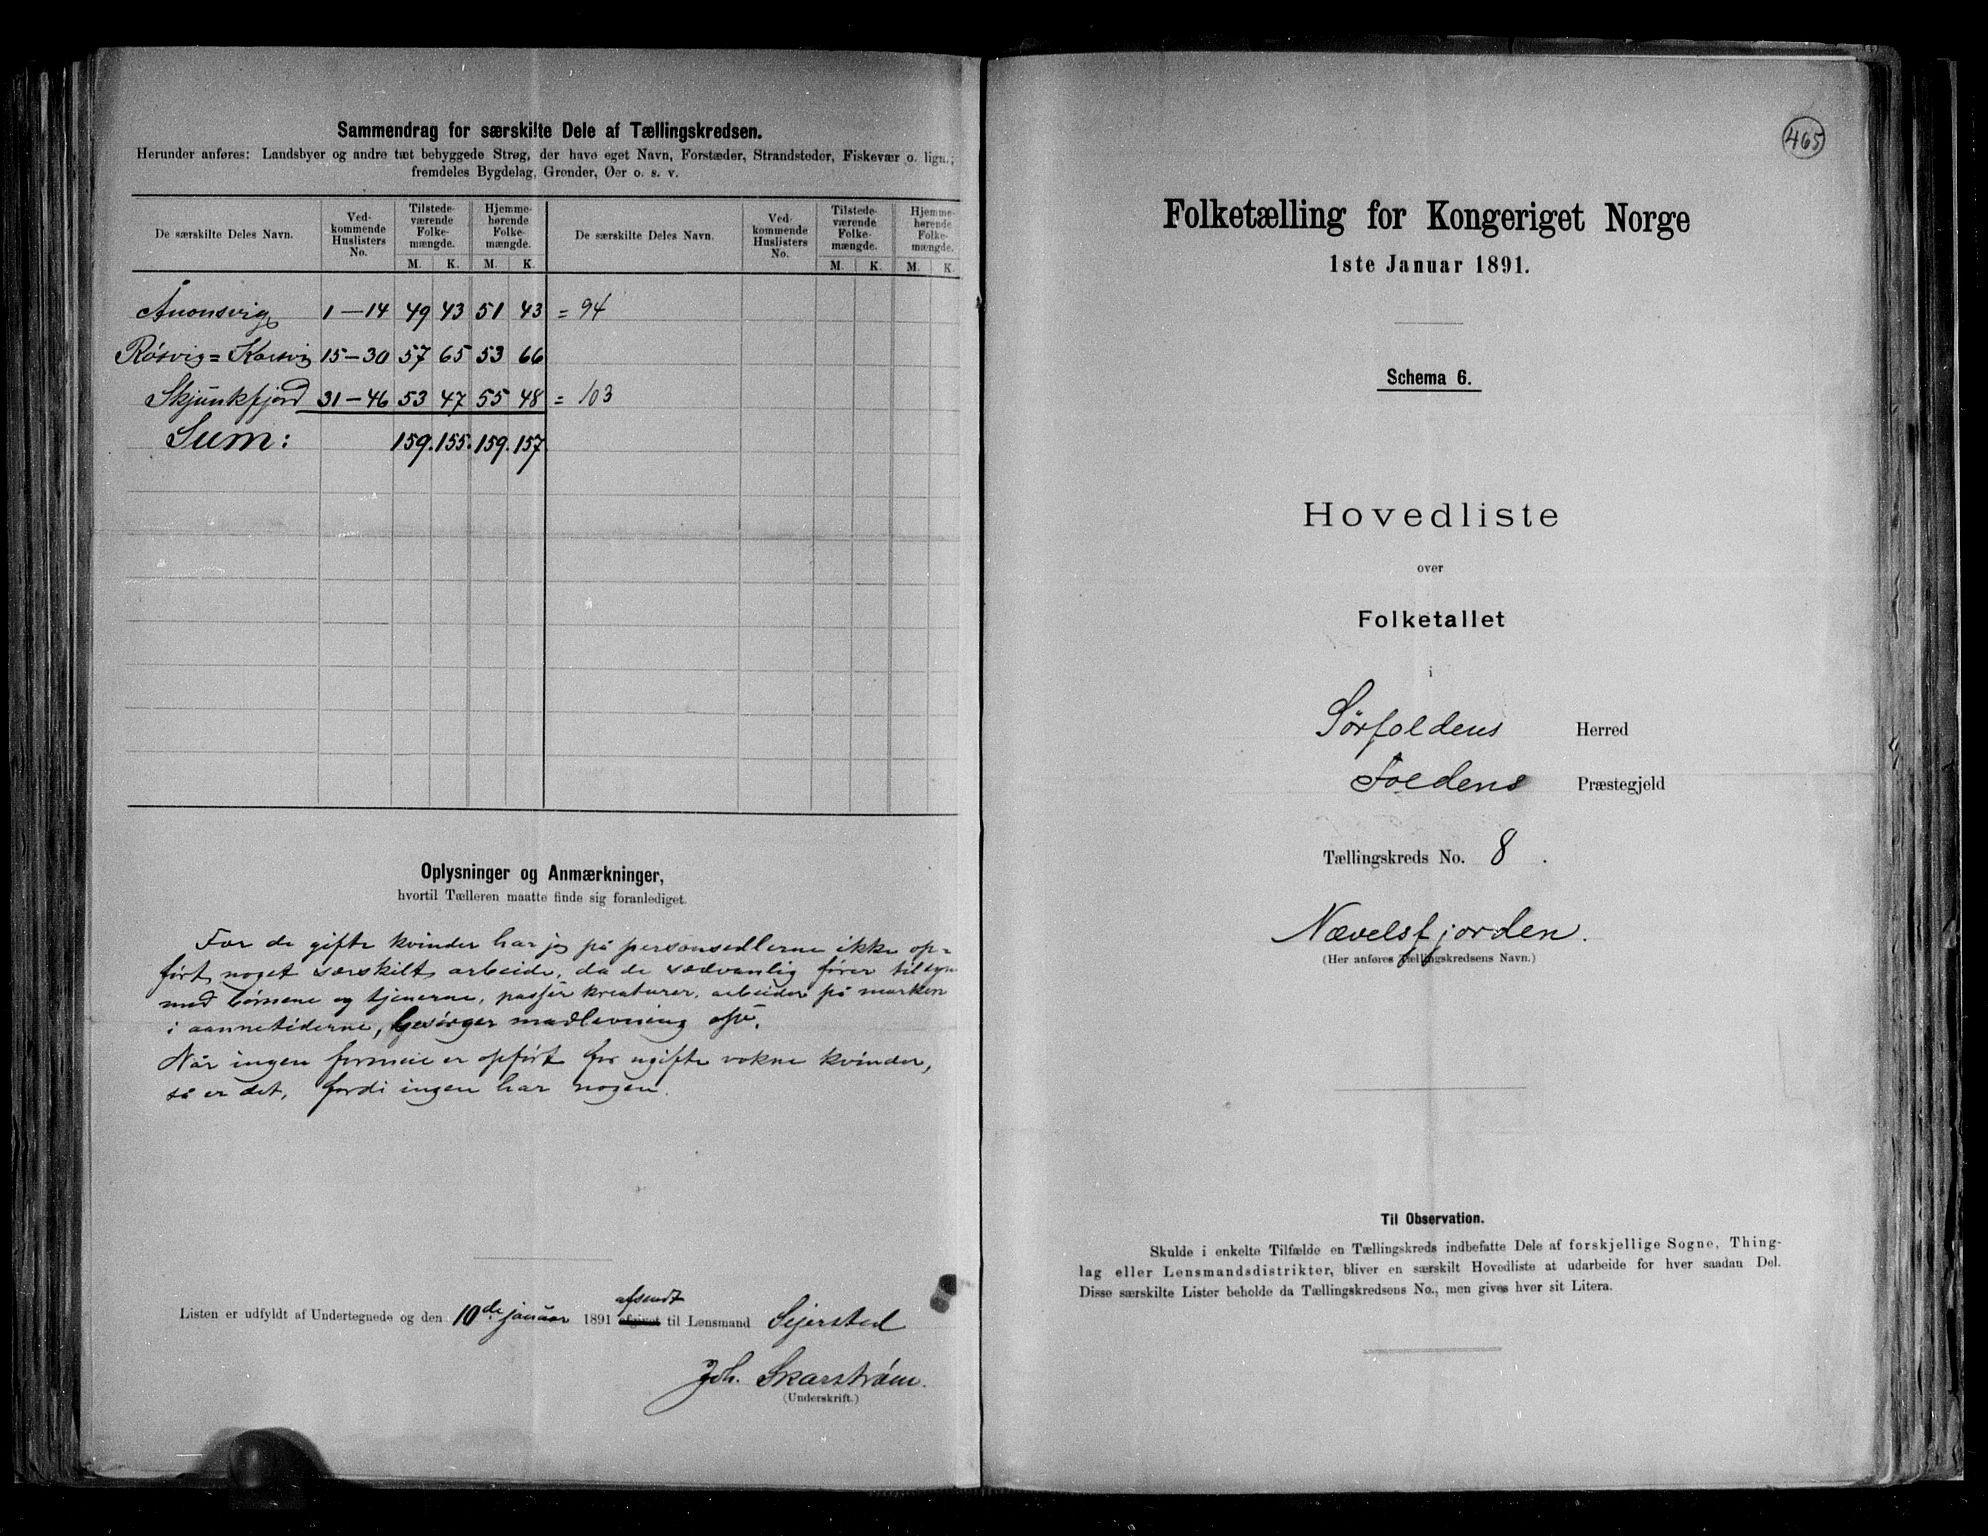 Sammendrag for særskilte Dele af Tællingskredsen.
Herunder anføres: Landsbyer og andre tæt bebyggede Strøg, der have eget Navn, Forstæder, Strandsteder, Fiskevær o. lign.;
fremdeles Bygdelag, Grender, Øer o. s. v.
De særskilte Deles Navn. Ved-kommende Huslisters No. Tilstede-værende Folke-mængde. Hjemme-hørende Folke-mængde. De særskilte Deles Navn. Ved-kommende Huslisters No. Tilstede-værende Folke-mængde. Hjemme-hørende Folke-mængde.
M. K. M. K. M. K. M. K.
1—14 49 43 51 43 = 94
Røsvig=Korsvig 15—30 57 65 53 66
Skjunkfjord 31—46 53 47 55 48 = 103
Sum: 159. 155. 159. 157.
Oplysninger og Anmærkninger,
hvortil Tælleren maatte finde sig foranlediget.
For de gifte kvinder har jeg på personsedlerne ikke op-
ført noget særskilt arbeide, da de sædvanlig fører tilsyn
med børnene og tjenerne, passer kreaturer, arbeider på marken
i aannetiderne, besørger madlavning osv.
Når ingen formue er opført for ugifte voksne kvinder,
så er det, fordi ingen har nogen.
Listen er udfyldt af Undertegnede og den 10de januar 1891 afgivet afsendt til Lensmand Sejersted
Joh. Skarstrøm.
(Underskrift.)
465
Folketælling for Kongeriget Norge
1ste Januar 1891.
Schema 6.
Hovedliste
over
Folketallet
i
Sørfoldens Herred
Foldens Præstegjeld
Tællingskreds No. 8.
Nævelsfjorden.
(Her anføres Tællingskredsens Navn.)
Til Observation.
Skulde i enkelte Tilfælde en Tællingskreds indbefatte Dele af forskjellige Sogne, Thing-
lag eller Lensmandsdistrikter, bliver en særskilt Hovedliste at udarbeide for hver saadan Del.
Disse særskilte Lister beholde da Tællingskredsens No., men gives hver sit Litera.